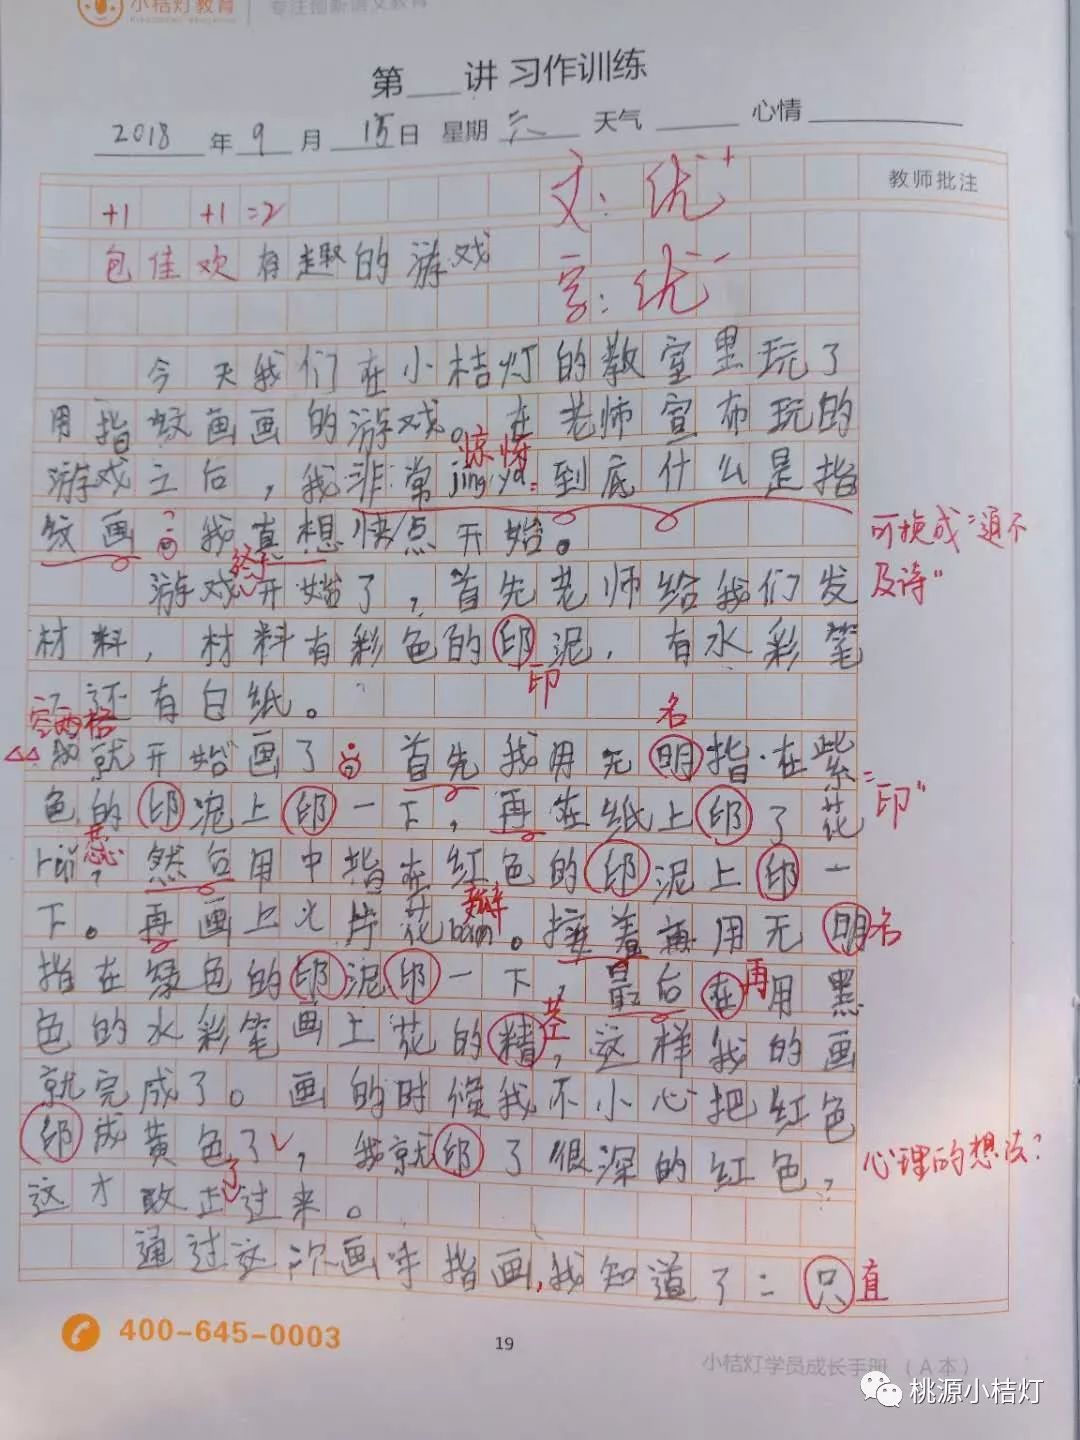 小桔灯教育 专注创新语文教育
第___讲 习作训练
2018年9月15日 星期六 天气 心情
教师批注
+1 +1=2
文：优+
包佳欢 有趣的游戏
字：优-
今天我们在小桔灯的教室里玩了
用指纹画画的游戏。在老师宣布玩的
惊讶
游戏之后，我非常jing ya：到底什么是指
纹画？我真想快点开始。
可换成“迫不
及待”
终于
游戏开始了，首先老师给我们发
材料，材料有彩色的印泥，有水彩笔
印
还有白纸。
空两格
名
我就开始画了：首先我用无明指在紫
色的印泥上印一下，再在纸上印了花
“印”
蕊
rui，然后用中指在红色的印泥上印一
瓣
下。再画上火片花ban。接着再用无明
名
指在绿色的印泥印一下，最后在用黑
再
色的水彩笔画上花的精，这样我的画
茎
就完成了。画的时候我不小心把红色
印成黄色了，我就印了很深的红色，
心理的想法？
这才改正过来。
了
通过这次画手指画，我知道了：只
直
400-645-0003
19
小桔灯学员成长手册（A本）
桃源小桔灯